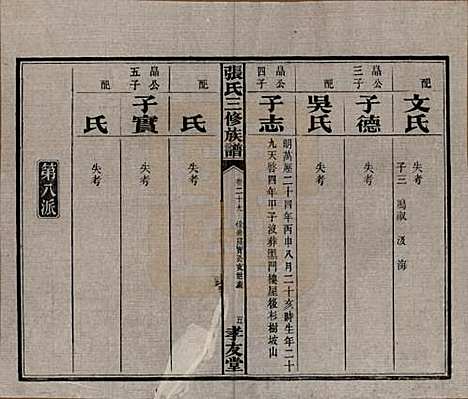 配
文氏
失考
子三 鳴淑 汲 海
晶公
三子
子德
失考
配
吳氏
失考
晶公
四子
子志
明萬歷二十四年丙申八月二十亥時生年二十
九天啓四年甲子沒葬黑門樓屋後杉樹坡山
張氏三修族譜
卷二十九
五
孝友堂
配
氏
失考
晶公
五子
子實
失考
配
氏
失考
第八派